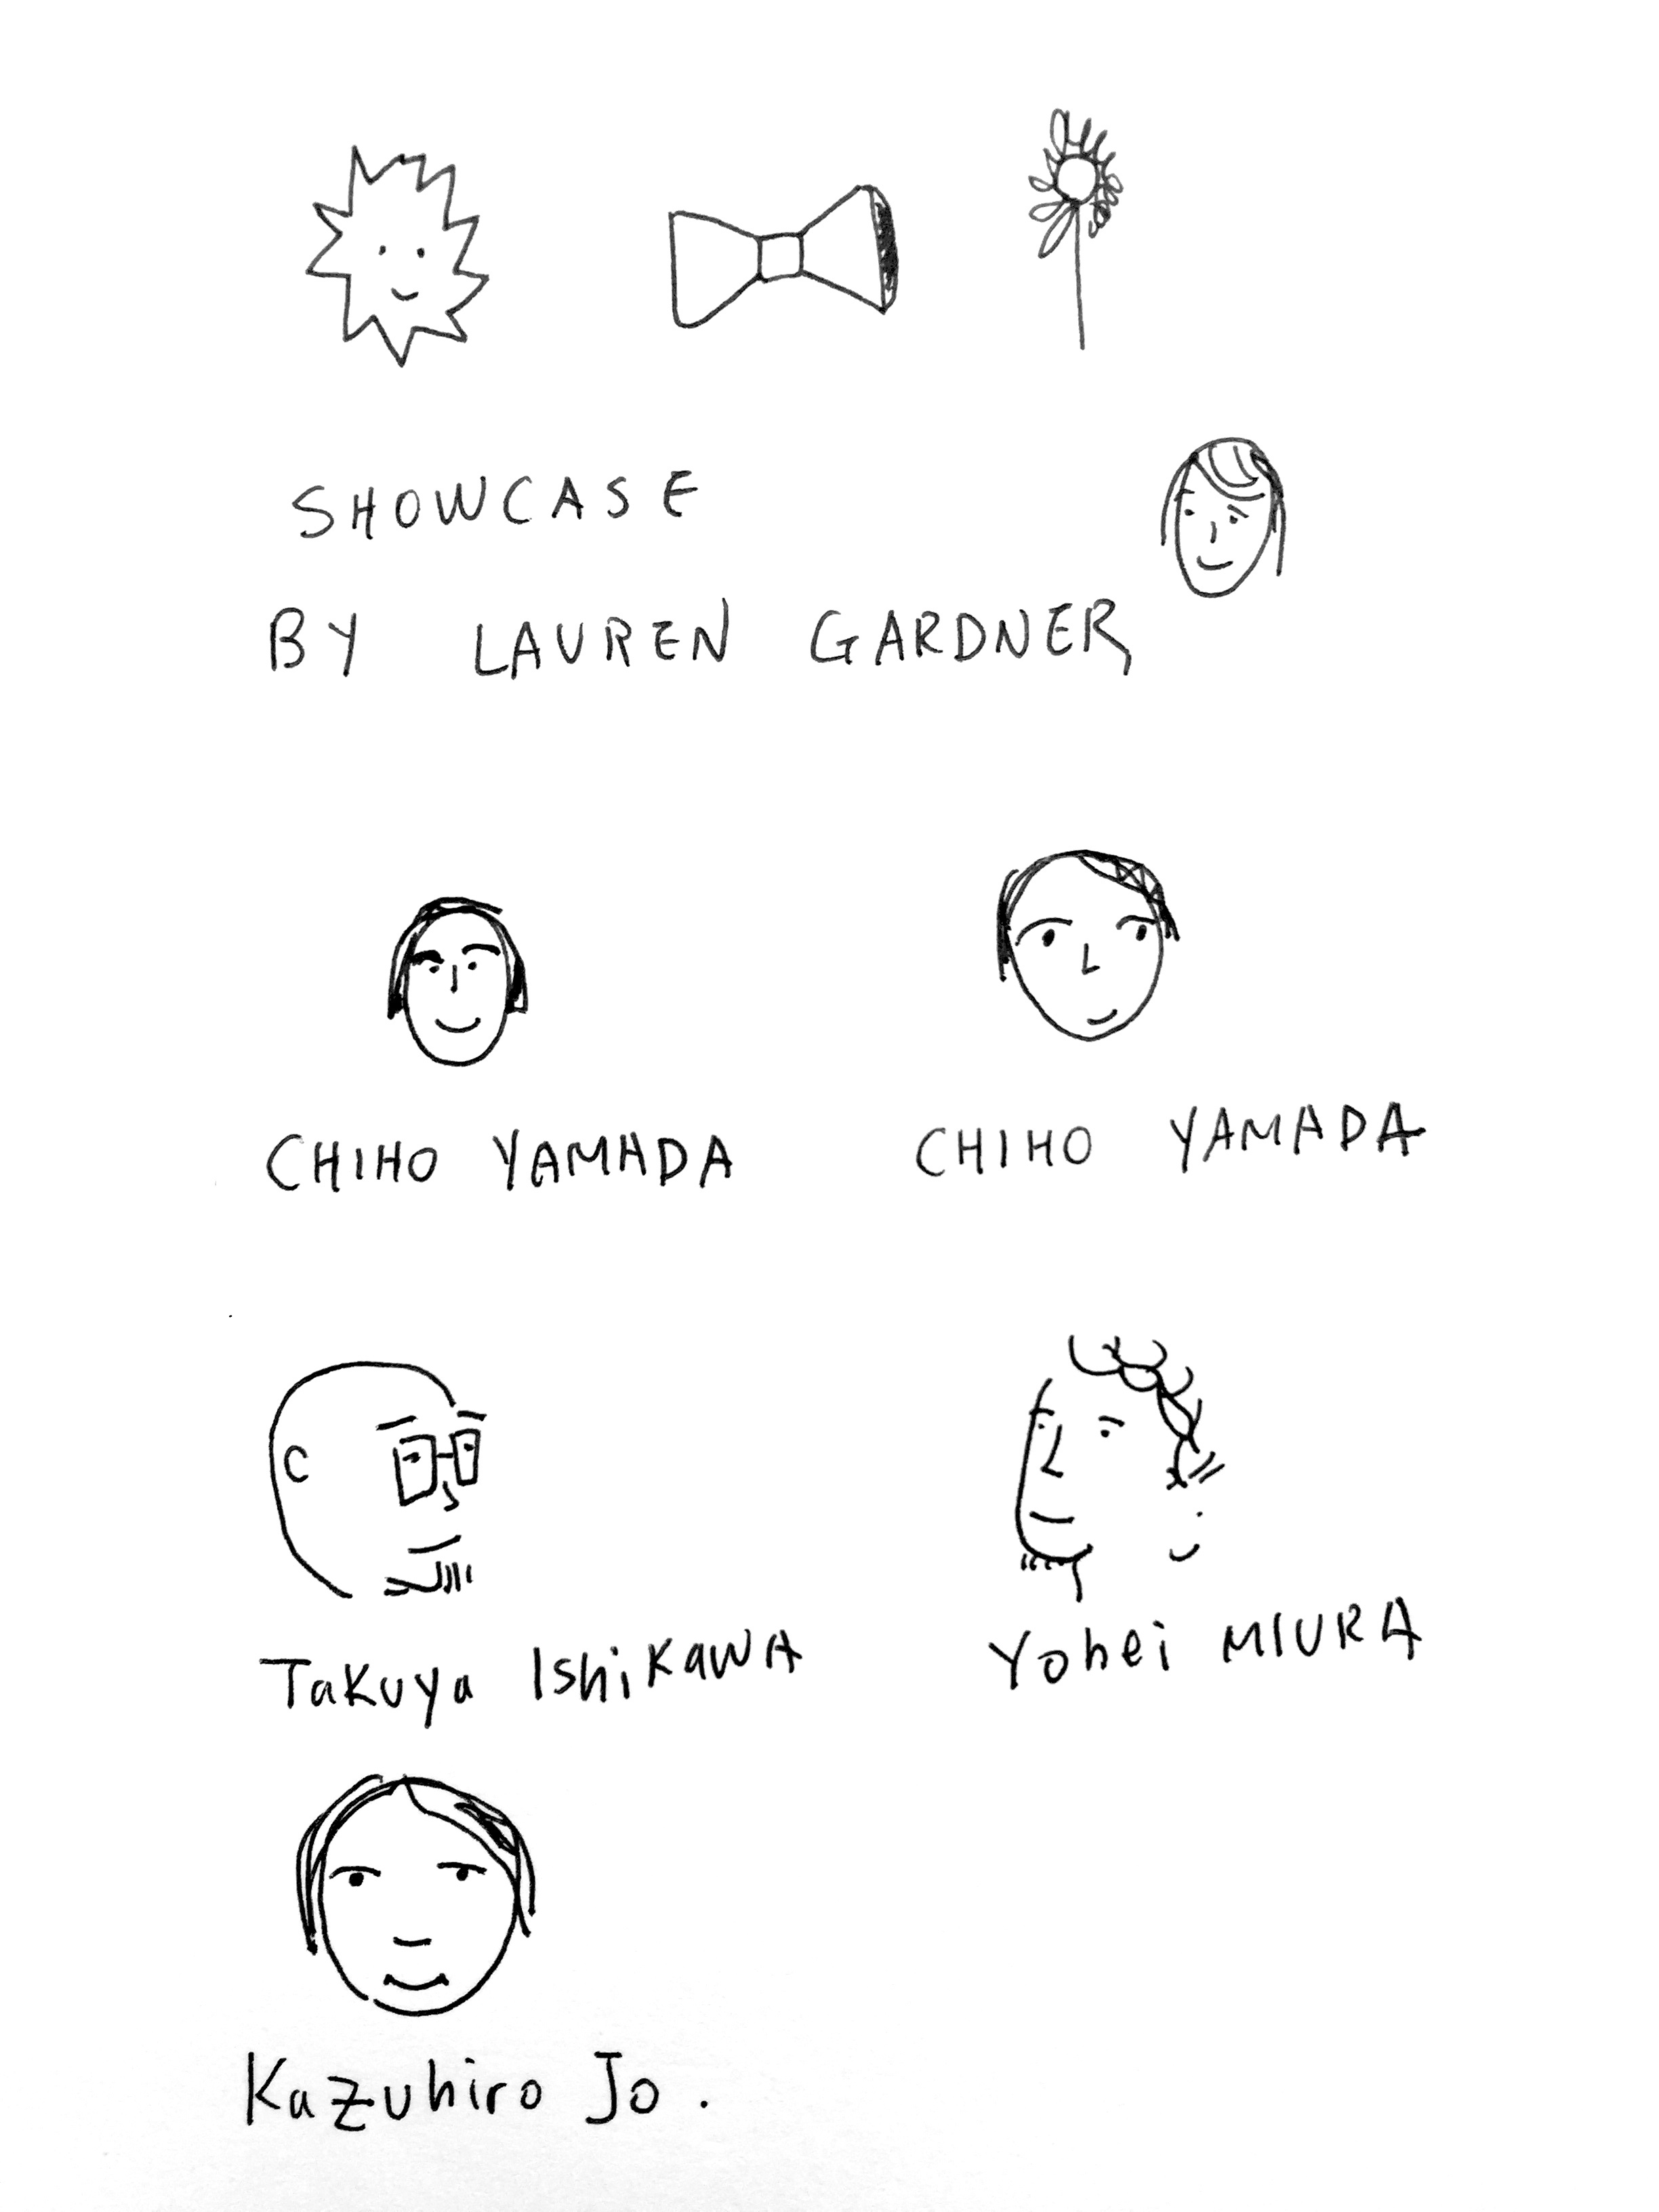 SHOWCASE
BY LAUREN GARDNER
CHIHO YAMADA
CHIHO YAMADA
Takuya IshiKaWA
Yohei MIURA
Kazuhiro Jo.